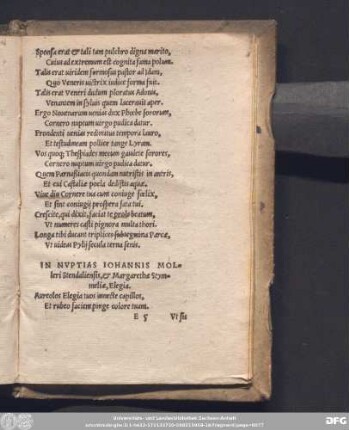 Sponsa erat & tali tam pulchro digna marito,
Cuius ad extremum est cognita fama polum.
Talis erat viridem formosus pastor ad Idam,
Quo Veneris victrix iudice forma fuit.
Talis erat Veneri dictum ploratus Adonis,
Venantem in syluis quem lacerauit aper.
Ergo Nouenarum venias dux Phœbe sororum,
Cornero nuptum virgo pudica datur.
Frondenti venias redimitus tempora lauro,
Et testudineam pollice tange Lyram.
Vos quoque Thespiades mecum gaudete sorores,
Cornero nuptum virgo pudica datur.
Quem Parnassiacis quondam nutristis in antris,
Et cui Castaliæ pocla dedistis aquæ.
Viue diu Cornere tua cum coniuge fœlix,
Et sint coniugij prospera fata tui.
Crescite, qui dixit, faciat te prole beatum,
Vt numeres casti pignora multa thori.
Longa tibi ducant triplices subtegmina Parcæ,
Vt videas Pylij secula terna senis.
IN NVPTIAS IOHANNIS MOL⸗
leri Stendaliensis, & Margarethæ Sym⸗
meliæ, Elegia.
Aureolos Elegia tuos innecte capillos,
Et rubeo faciem pinge colore tuam.
E 5 Vt sis
Universitäts- und Landesbibliothek Sachsen-Anhalt
DFG